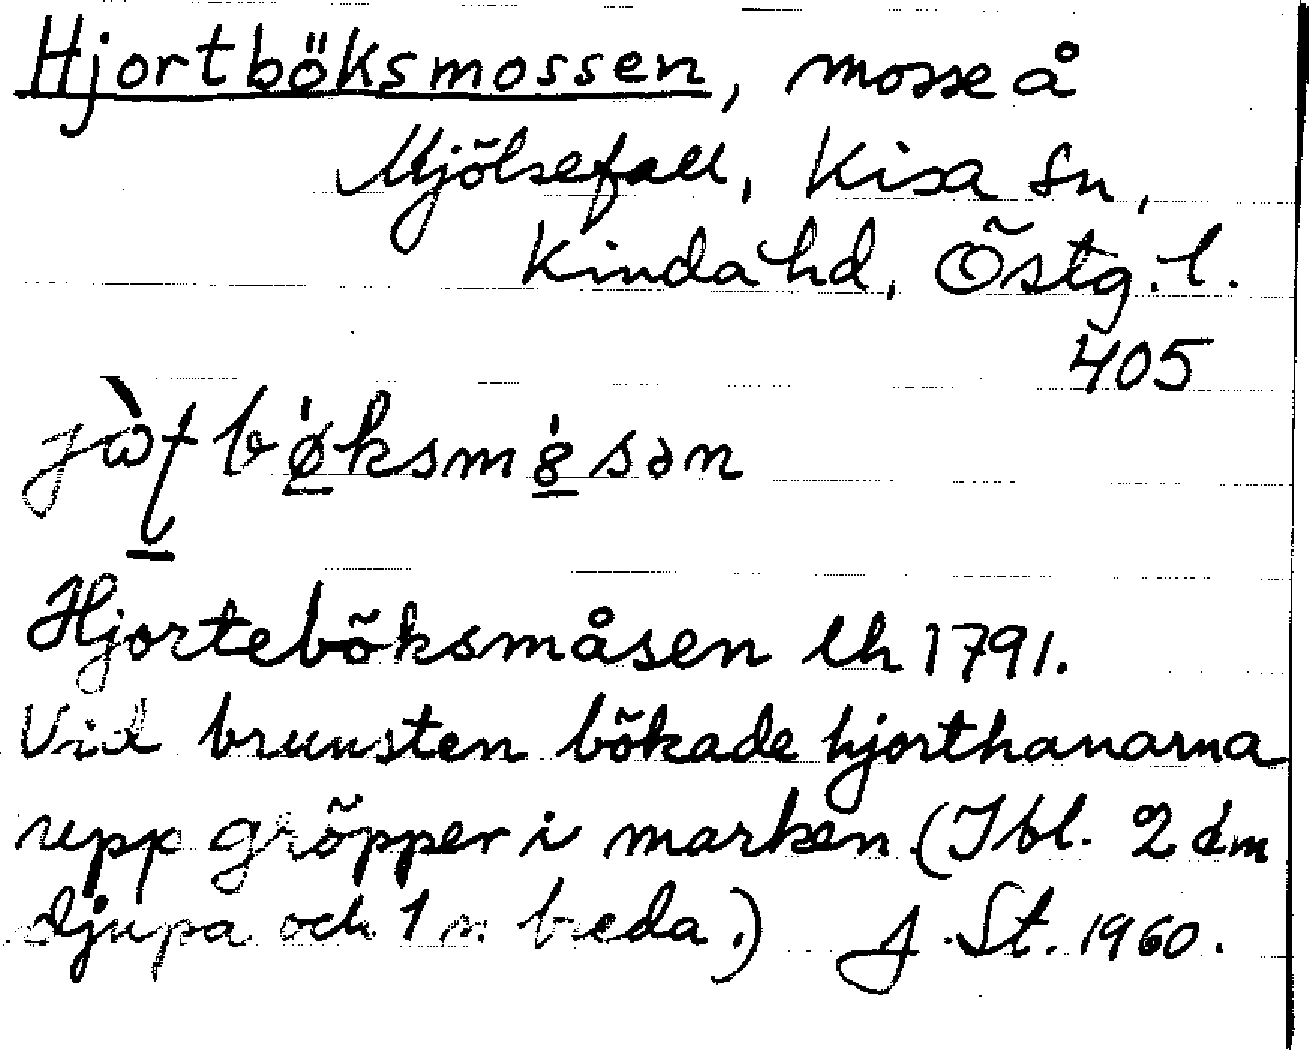 Hjortböksmossen, mosse å
Mjölsefall, Kisa sn,
Kinda hd, Östg. l.
405
Hjorteböksmåsen lh 1791.
Vid brunsten bökade hjorthanarna
upp gröpper i marken (Ibl. 2 dm
djupa och 1 m breda.) J. St. 1960.